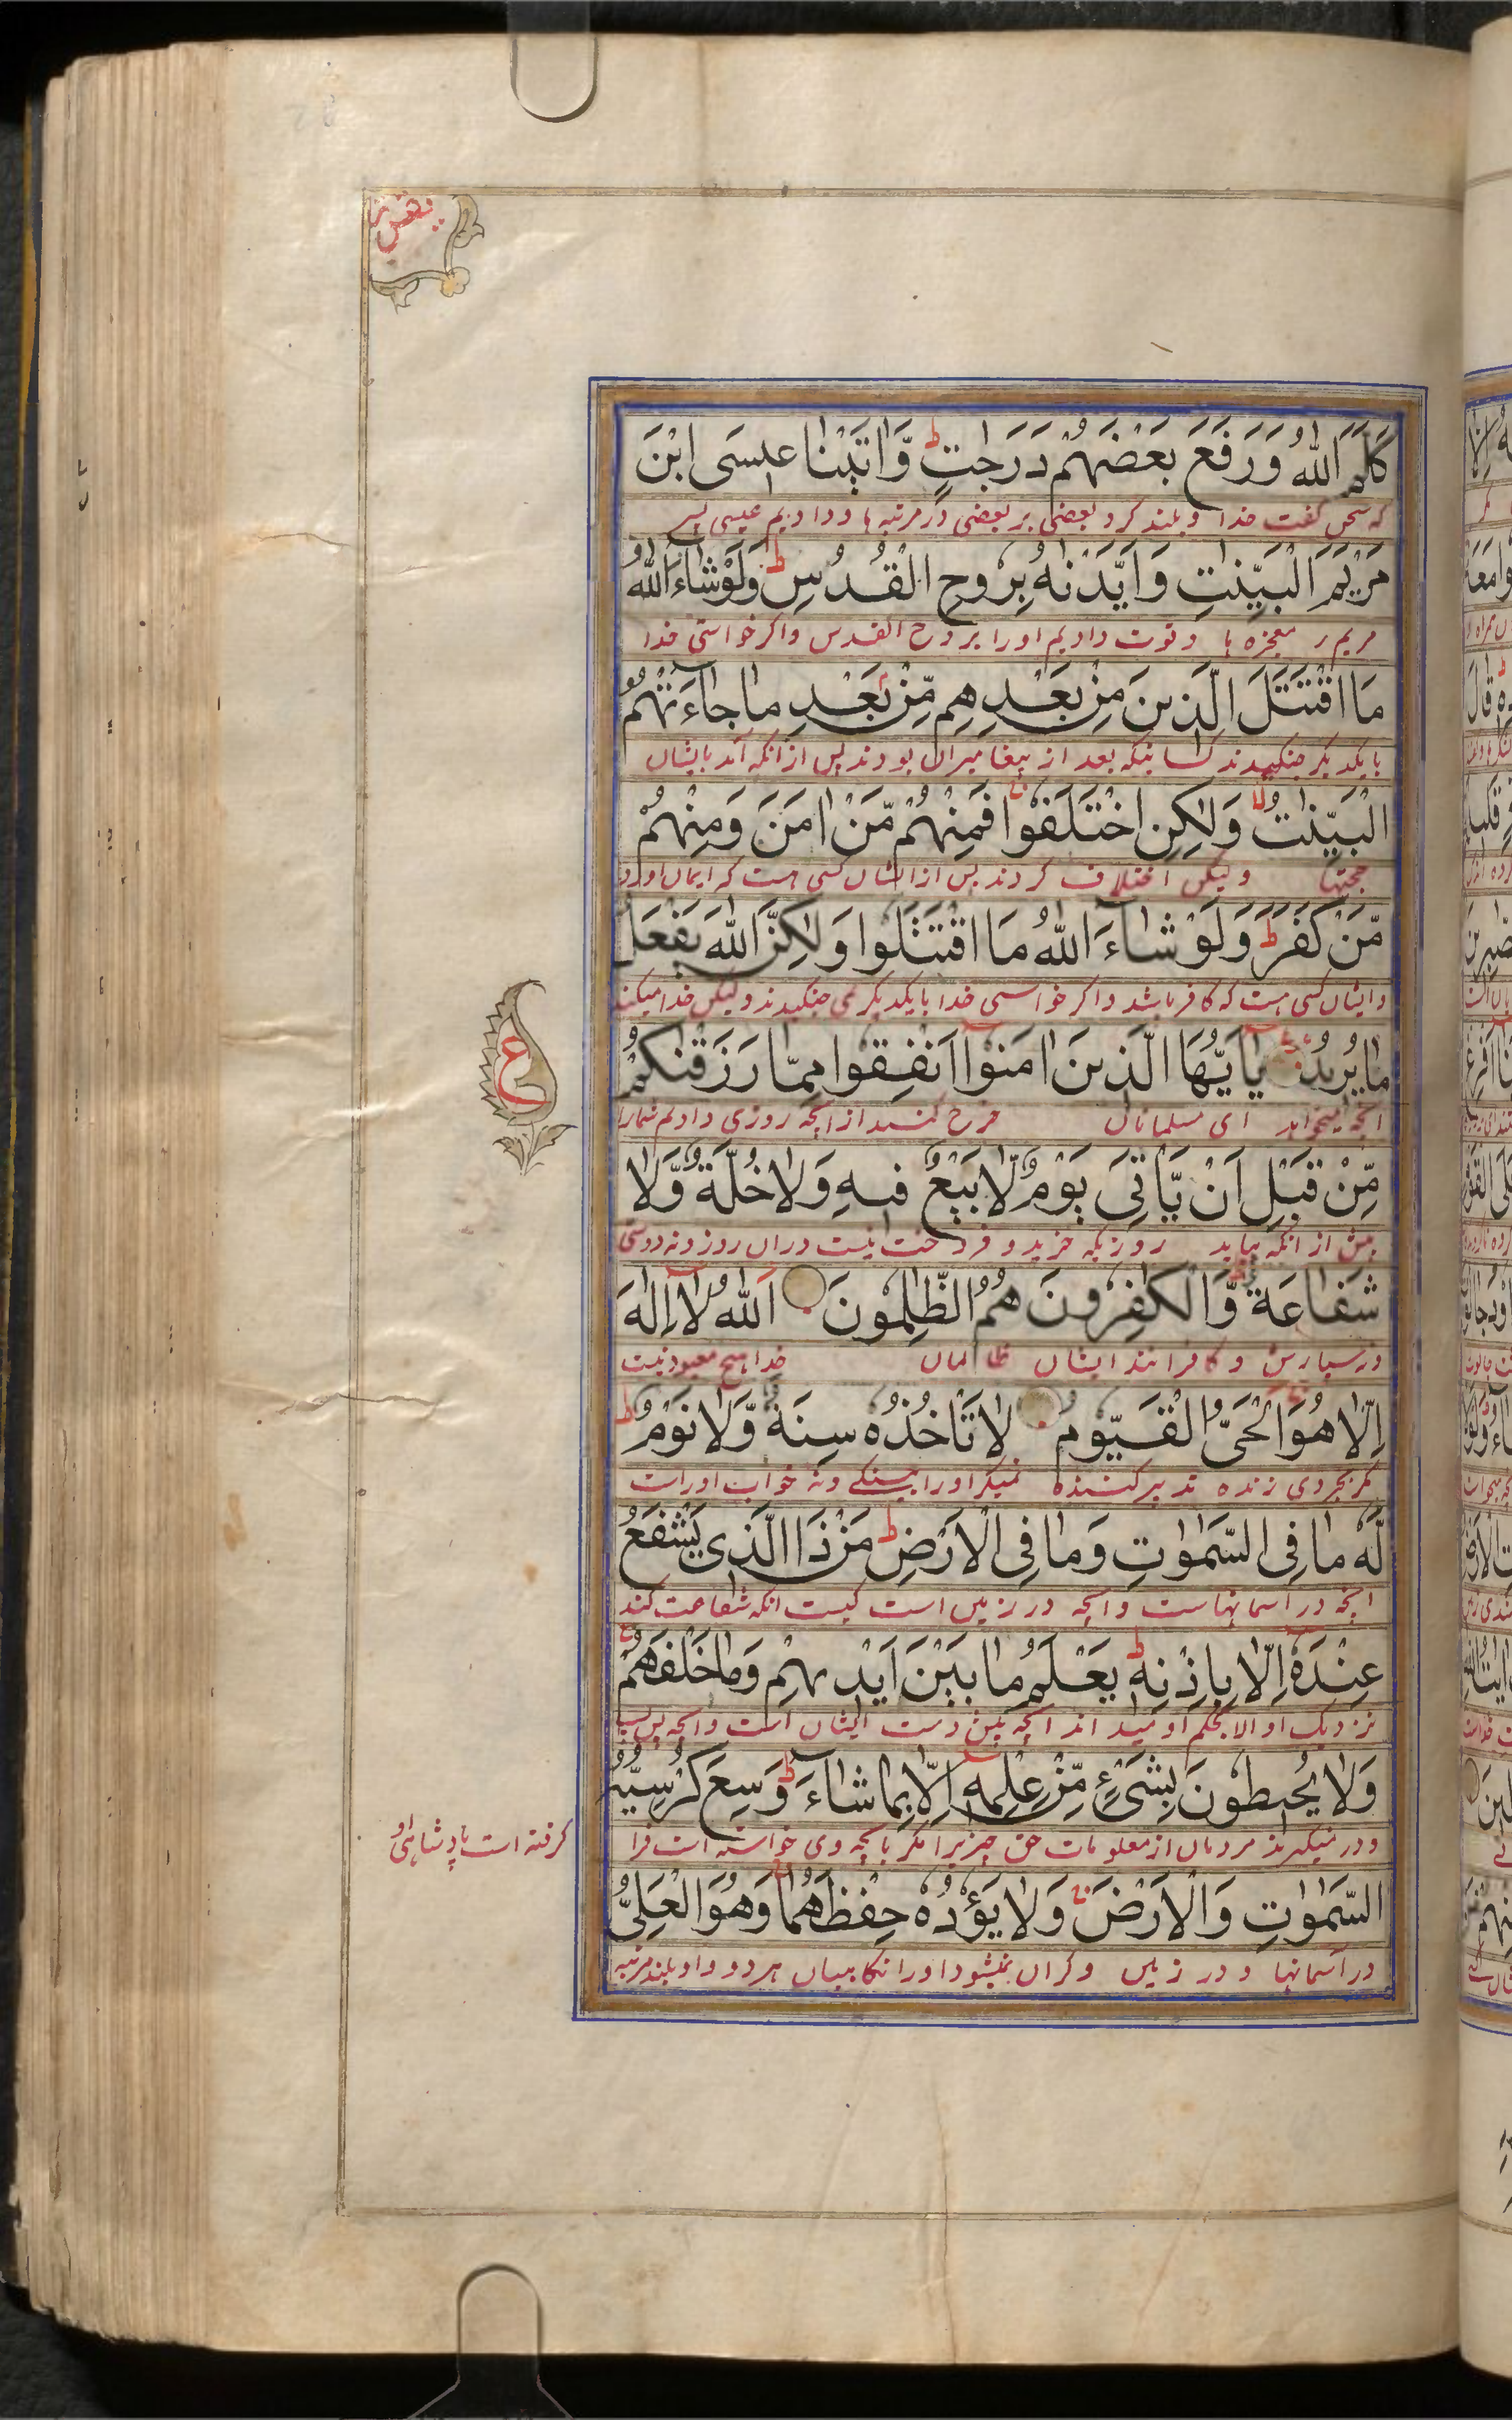 كَلَّمَ اللّٰهُ وَرَفَعَ بَعْضَهُمْ دَرَجٰتٍ ط وَّاٰتَيْنَا عِيسَى ابْنَ
که سخن گفت خدا و بلند کرد بعضی بر بعضی در مرتبه ها و دادیم عیسی پسر
مَرْيَمَ الْبَيِّنٰتِ وَاَيَّدْنٰهُ بِرُوحِ الْقُدُسِ ط وَلَوْ شَاءَ اللّٰهُ
مریم را معجزه ها و قوت دادیم او را بروح القدس و اگر خواستی خدا
مَا اقْتَتَلَ الَّذِينَ مِنْ بَعْدِهِمْ مِّنْ بَعْدِ مَا جَاءَتْهُمُ
با یکدیگر جنگیدند کسانیکه بعد از پیغامبران بودند پس از انکه آمد بایشان
الْبَيِّنٰتُ وَلٰكِنِ اخْتَلَفُوا فَمِنْهُمْ مَّنْ اٰمَنَ وَمِنْهُمْ
حجتها ولیکن اختلاف کردند پس از ایشان کسی هست که ایمان اورد
مَّنْ كَفَرَ ط وَلَوْ شَاءَ اللّٰهُ مَا اقْتَتَلُوا وَلٰكِنَّ اللّٰهَ يَفْعَلُ
و ایشان کسی هست که کافر باشد و اگر خواستی خدا با یکدیگر نمی جنگیدند ولیکن خدا میکند
مَا يُرِيدُ يٰاَيُّهَا الَّذِينَ اٰمَنُوا اَنْفِقُوا مِمَّا رَزَقْنٰكُمْ
انچه میخواهد ای مسلمانان خرج کنید از انچه روزی دادیم شمارا
مِّنْ قَبْلِ اَنْ يَّاْتِىَ يَوْمٌ لَّا بَيْعٌ فِيهِ وَلَا خُلَّةٌ وَّلَا
پیش از انکه بیاید روزیکه خرید و فروخت نیست دران روز و نه دوستی
شَفَاعَةٌ وَّالْكٰفِرُونَ هُمُ الظّٰلِمُونَ اَللّٰهُ لَا اِلٰهَ
و نه سپارش و کافرانند ایشان ظالمان خدا هیچ معبود نیست
اِلَّا هُوَ الْحَىُّ الْقَيُّومُ لَا تَاْخُذُهٗ سِنَةٌ وَّلَا نَوْمٌ ط
مگر بجز وی زنده تدبیر کننده نمیگیرد او را پینکی و نه خواب اوراست
لَهٗ مَا فِى السَّمٰوٰتِ وَمَا فِى الْاَرْضِ ط مَنْ ذَا الَّذِى يَشْفَعُ
انچه در اسمانهاست و انچه در زمین است کیست انکه شفاعت کند
عِنْدَهٗ اِلَّا بِاِذْنِهٖ ط يَعْلَمُ مَا بَيْنَ اَيْدِيهِمْ وَمَا خَلْفَهُمْ
نزدیک او الا بحکم او میداند انچه پیش دست ایشان است و انچه پس
وَلَا يُحِيطُونَ بِشَىْءٍ مِّنْ عِلْمِهٖ اِلَّا بِمَا شَاءَ ط وَسِعَ كُرْسِيُّهُ
و در نمیگیرند مردمان از معلومات حق چیزیرا مگر بانچه وی خواسته است فرا
گرفته است پادشاهی او
السَّمٰوٰتِ وَالْاَرْضَ وَلَا يَؤُدُهٗ حِفْظُهُمَا وَهُوَ الْعَلِىُّ
در آسمانها و در زمین و گران نمیشود اورا نگاهبانی هر دو و او بلند مرتبه
ع